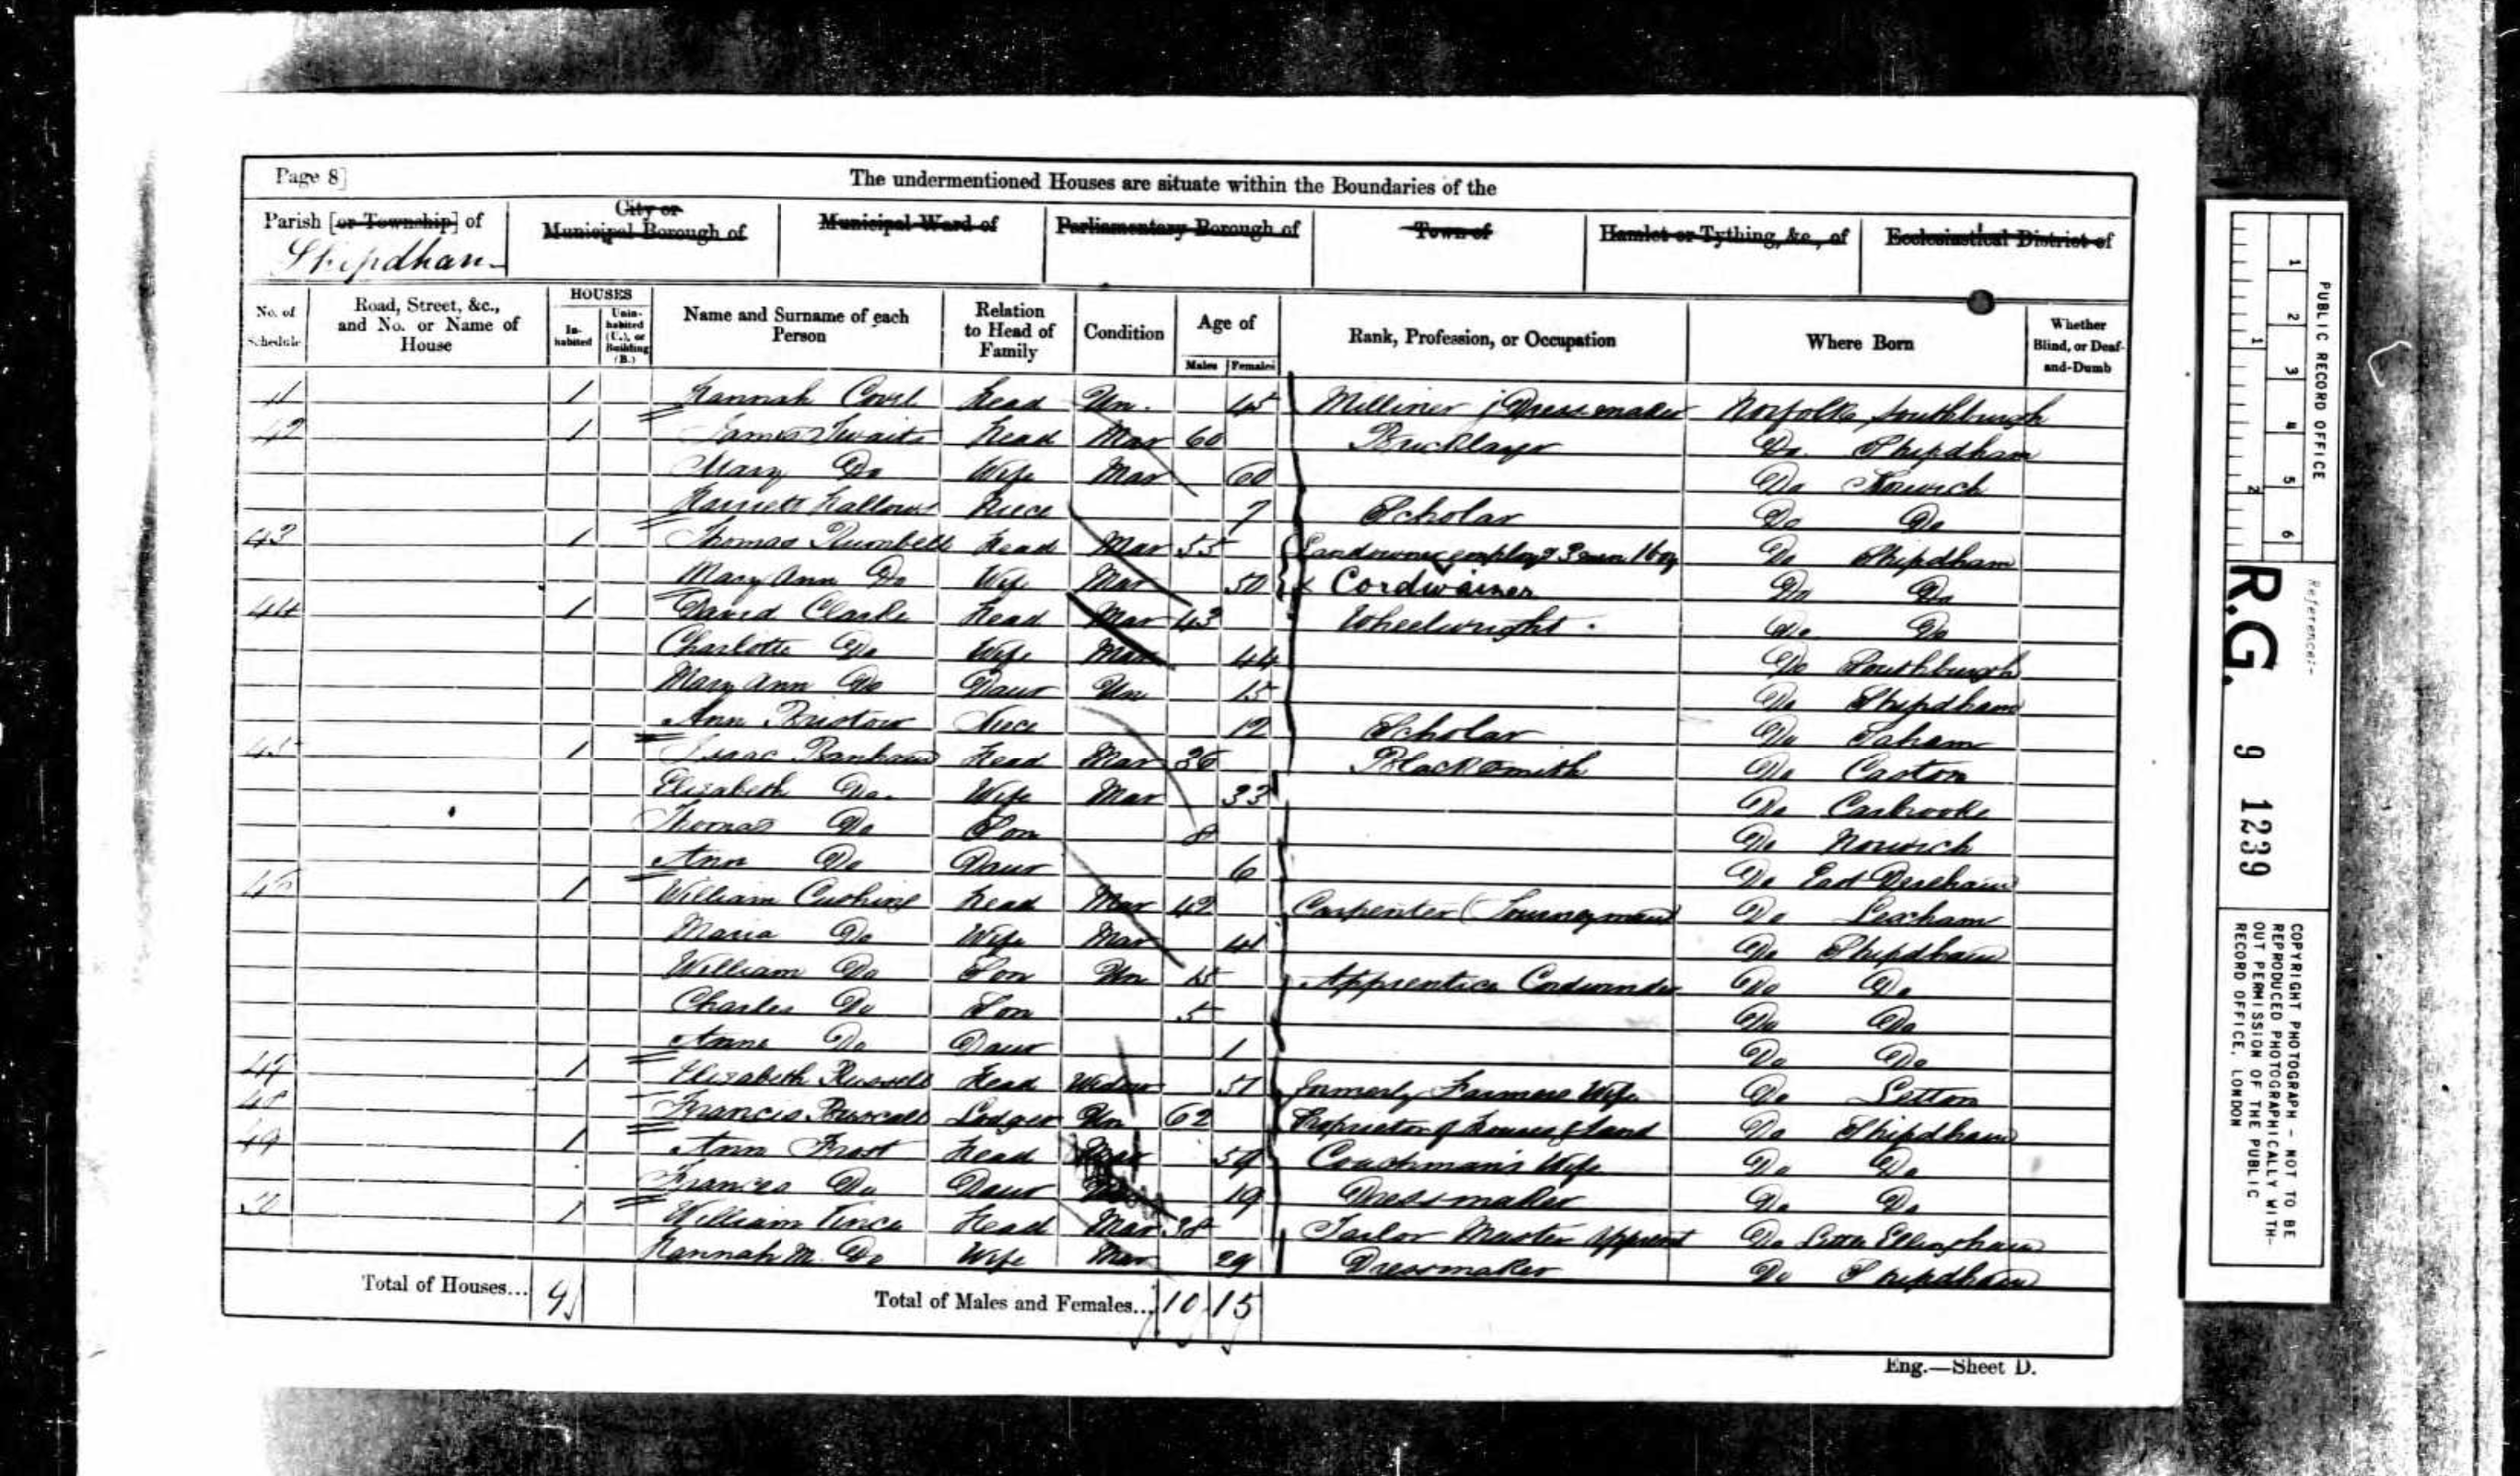 Page 8]
The undermentioned Houses are situate within the Boundaries of the
Parish [or Township] of
Shipdham
City or
Municipal Borough of
Municipal Ward of
Parliamentary Borough of
Town of
Hamlet or Tything, &c., of
Ecclesiastical District of
No. of Schedule
Road, Street, &c., and No. or Name of House
HOUSES
In-habited
Unin-habited (U.), or Building (B.)
Name and Surname of each Person
Relation to Head of Family
Condition
Age of
Males
Females
Rank, Profession, or Occupation
Where Born
Whether Blind, or Deaf-and-Dumb
41 1 Hannah Head Un. 45 Milliner Dressmaker Norfolk Southburgh
42 1 James Thwaite Head Mar 60 Bricklayer Do. Shipdham
Mary Do Wife Mar 60 Do Norwich
Harriett Niece 7 Scholar Do Do
43 1 Thomas Rumbell Head Mar 55 Landowner employg 3 men 1 boy Do Shipdham
Mary Ann Do Wife Mar 50 & Cordwainer Do Do
44 1 David Clarke Head Mar 43 Wheelwright Do Do
Charlotte Do Wife Mar 44 Do Southburgh
Mary Ann Do Daur Un 15 Do Shipdham
Ann Bristow Niece 12 Scholar Do Saham
45 1 Isaac Banham Head Mar 36 Blacksmith Do Caston
Elizabeth Do. Wife Mar 33 Do Carbrooke
Thomas Do Son 8 Do Norwich
Ann Do Daur 6 Do East Dereham
46 1 William Cushing Head Mar 42 Carpenter (Journeyman) Do Lexham
Maria Do Wife Mar 41 Do Shipdham
William Do Son Un 15 Apprentice Do Do
Charles Do Son 5 Do Do
Anne Do Daur 1 Do Do
47 1 Elizabeth Russell Head Widow 51 formerly Farmers Wife Do Letton
48 Francis Lodger Un 62 Proprietor of houses & land Do Shipdham
49 1 Ann Frost Head Mar 59 Coachman's Wife Do Do
Frances Do Daur 19 Dressmaker Do Do
50 1 William Vince Head Mar 38 Tailor Master Do Little Ellingham
Hannah M. Do Wife Mar 29 Dressmaker Do Shipdham
Total of Houses... 9
Total of Males and Females... 10 15
Eng.—Sheet D.
PUBLIC RECORD OFFICE
1 2 3 4 5 6
1 2
Reference:-
R.G. 9 1239
COPYRIGHT PHOTOGRAPH - NOT TO BE
REPRODUCED PHOTOGRAPHICALLY WITH-
OUT PERMISSION OF THE PUBLIC
RECORD OFFICE, LONDON